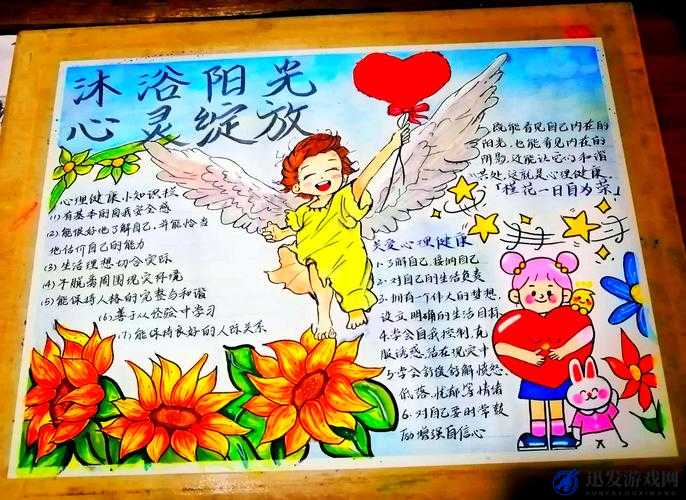 沐浴阳光
心灵绽放
心理健康小知识栏
(1)有基本的自我安全感
(2)能很好地了解自己,并能恰当
地估价自己的能力
(3)生活理想切合实际
(4)不脱离周围现实环境
(5)能保持人格的完整与和谐
(6)善于从经验中学习
(7)能保持良好的人际关系
既能看见自己内在的
阳光,也能看见内在的
阴影,还能让它们和谐
共处,这就是心理健康.
「槿花一日自为荣」
关爱心理健康
1.了解自己,接纳自己
2.对自己的生活负责
3.拥有一个伟大的梦想,
设立明确的生活目标
4.学会自我控制,克
服诱惑,活在现实中
5.学会舒缓的解愤怒、
低落、忧郁等情绪
6.对自己要时常鼓
励增强自信心
迅发游戏网